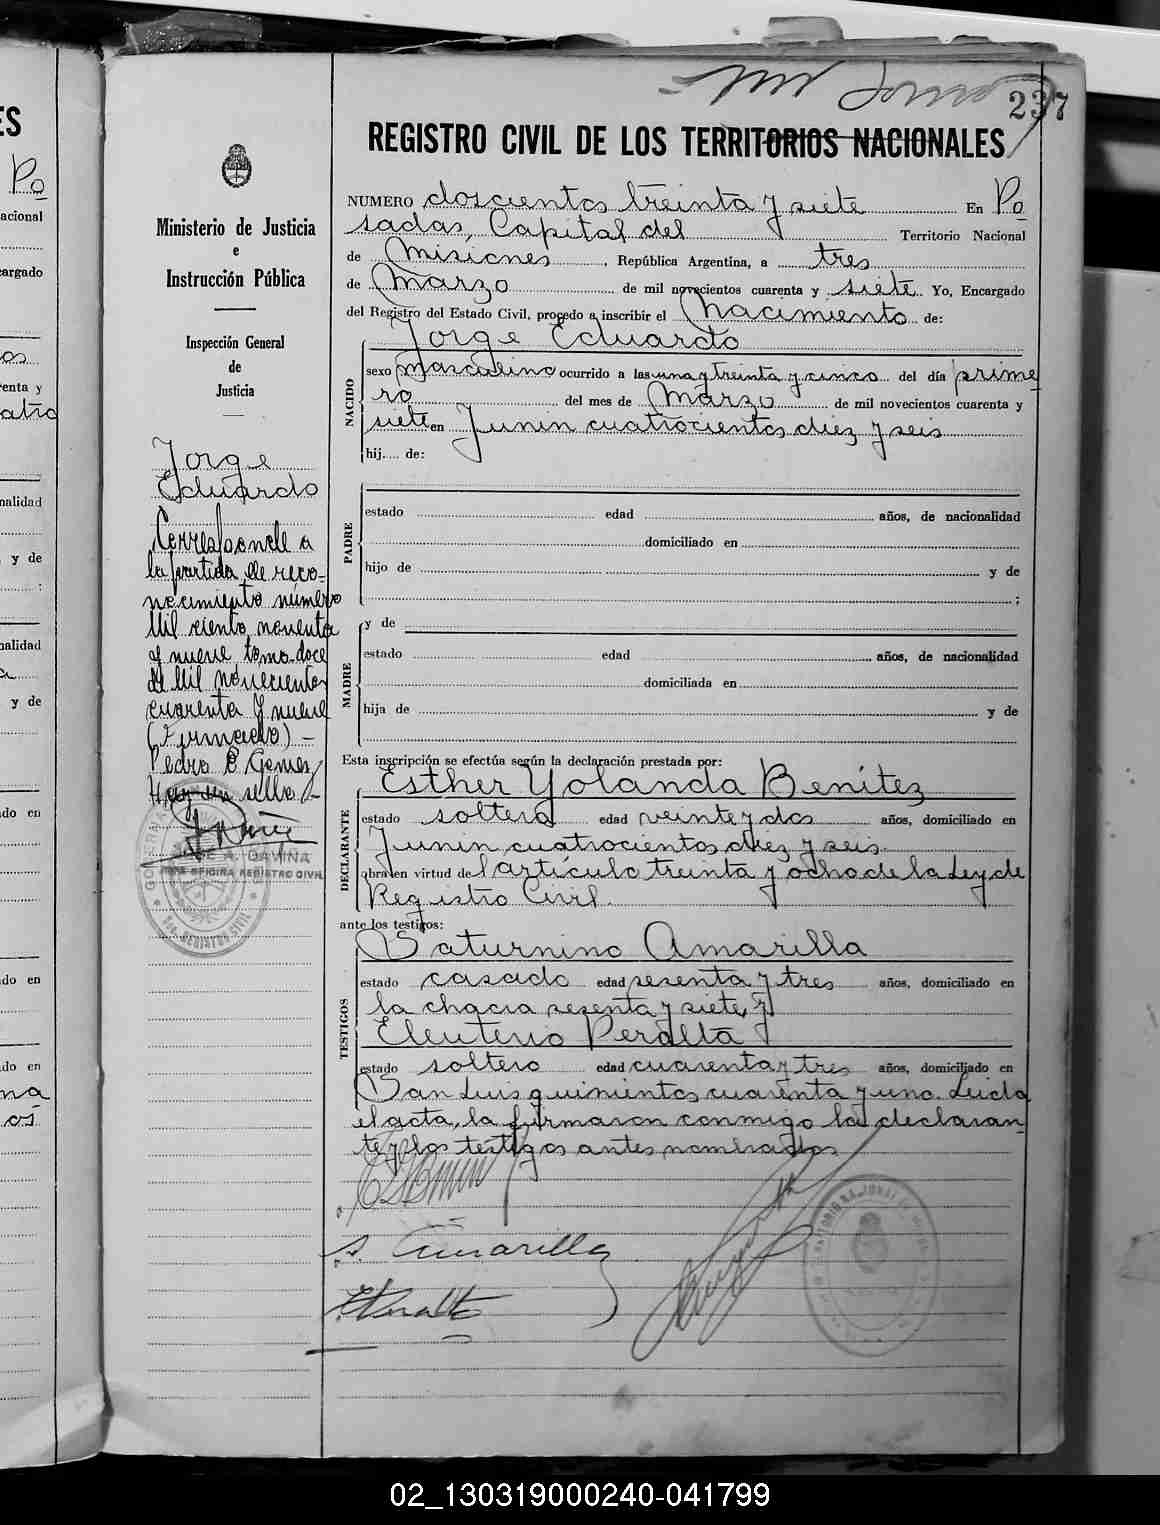 237
REGISTRO CIVIL DE LOS TERRITORIOS NACIONALES
Ministerio de Justicia
e
Instrucción Pública
Inspección General
de
Justicia
Jorge
Eduardo
Corresponde a
la partida de reco-
nocimiento número
Mil ciento noventa
y nueve, tomo doce
de Mil novecientos
cuarenta y nueve
(Firmado) -
Pedro E Gomez
Hay un sello -
JOSE A. GAVIÑA
JEFE OFICINA REGISTRO CIVIL
NUMERO doscientos treinta y siete En Po
sadas, Capital del Territorio Nacional
de Misiones, República Argentina, a tres
de Marzo de mil novecientos cuarenta y siete Yo, Encargado
del Registro del Estado Civil, procedo a inscribir el Nacimiento de:
Jorge Eduardo
NACIDO
sexo masculino ocurrido a las una y treinta y cinco del día prime
ro del mes de Marzo de mil novecientos cuarenta y
siete en Junin cuatrocientos diez y seis
hij.... de:
PADRE
estado edad años, de nacionalidad
domiciliado en
hijo de y de
;
MADRE
y de
estado edad años, de nacionalidad
domiciliada en
hija de y de
Esta inscripción se efectúa según la declaración prestada por:
DECLARANTE
Esther Yolanda Benítez
estado soltera edad veinte y dos años, domiciliado en
Junin cuatrocientos diez y seis.
obra en virtud del artículo treinta y ocho de la Ley de
Registro Civil.
ante los testigos:
TESTIGOS
Saturnino Amarilla
estado casado edad sesenta y tres años, domiciliado en
la chacra sesenta y siete, y
Eleuterio Peralta
estado soltero edad cuarenta y tres años, domiciliado en
San Luis quinientos cuarenta y uno. Leida
el acta, la firmaron conmigo la declaran
te y los testigos antes nombrados
S. Amarilla
E Peralta
02_130319000240-041799